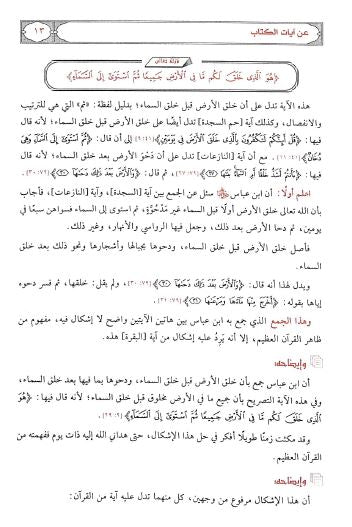 عن آيات الكتاب
١٣
قوله تعالى
﴿هُوَ الَّذِي خَلَقَ لَكُم مَّا فِي الْأَرْضِ جَمِيعًا ثُمَّ اسْتَوَىٰ إِلَى السَّمَاءِ﴾
هذه الآية تدل على أن خلق الأرض قبل خلق السماء؛ بدليل لفظة: «ثم» التي هي للترتيب
والانفصال، وكذلك آية [حم السجدة] تدل أيضًا على خلق الأرض قبل خلق السماء؛ لأنه قال
فيها: ﴿قُلْ أَئِنَّكُمْ لَتَكْفُرُونَ بِالَّذِي خَلَقَ الْأَرْضَ فِي يَوْمَيْنِ﴾ (٩:٤١) إلى أن قال: ﴿ثُمَّ اسْتَوَىٰ إِلَى السَّمَاءِ وَهِيَ
دُخَانٌ﴾ (١١:٤١). مع أن آية [النازعات] تدل على أن دَحْوَ الأرض بعد خلق السماء؛ لأنه قال
فيها: ﴿أَأَنتُمْ أَشَدُّ خَلْقًا أَمِ السَّمَاءُ بَنَاهَا﴾ (٢٧:٧٩)، ثم قال: ﴿وَالْأَرْضَ بَعْدَ ذَٰلِكَ دَحَاهَا﴾ (٣٠:٧٩).
اعلم أولًا: أن ابن عباس سئل عن الجمع بين آية [السجدة]، وآية [النازعات]، فأجاب
بأن الله تعالى خلق الأرض أولًا قبل السماء غير مَدْحُوَّةٍ، ثم استوى إلى السماء فسواهن سبعًا في
يومين، ثم دحا الأرض بعد ذلك، وجعل فيها الرواسي والأنهار، وغير ذلك.
فأصل خلق الأرض قبل خلق السماء، ودحوها بجبالها وأشجارها ونحو ذلك بعد خلق
السماء.
ويدل لهذا أنه قال: ﴿وَالْأَرْضَ بَعْدَ ذَٰلِكَ دَحَاهَا﴾ (٣٠:٧٩)، ولم يقل: خلقها، ثم فسر دحوه
إياها بقوله: ﴿أَخْرَجَ مِنْهَا مَاءَهَا وَمَرْعَاهَا﴾ (٣١:٧٩).
وهذا الجمع الذي جمع به ابن عباس بين هاتين الآيتين واضح لا إشكال فيه، مفهوم من
ظاهر القرآن العظيم، إلا أنه يَرِدُ عليه إشكال من آية [البقرة] هذه.
وإيضاحه:
أن ابن عباس جمع بأن خلق الأرض قبل خلق السماء، ودحوها بما فيها بعد خلق السماء،
وفي هذه الآية التصريح بأن جميع ما في الأرض مخلوق قبل خلق السماء؛ لأنه قال فيها: ﴿هُوَ
الَّذِي خَلَقَ لَكُم مَّا فِي الْأَرْضِ جَمِيعًا ثُمَّ اسْتَوَىٰ إِلَى السَّمَاءِ﴾ (٢٩:٢).
وقد مكثت زمنًا طويلًا أفكر في حل هذا الإشكال، حتى هداني الله إليه ذات يوم ففهمته من
القرآن العظيم.
وإيضاحه:
أن هذا الإشكال مرفوع من وجهين، كل منهما تدل عليه آية من القرآن: